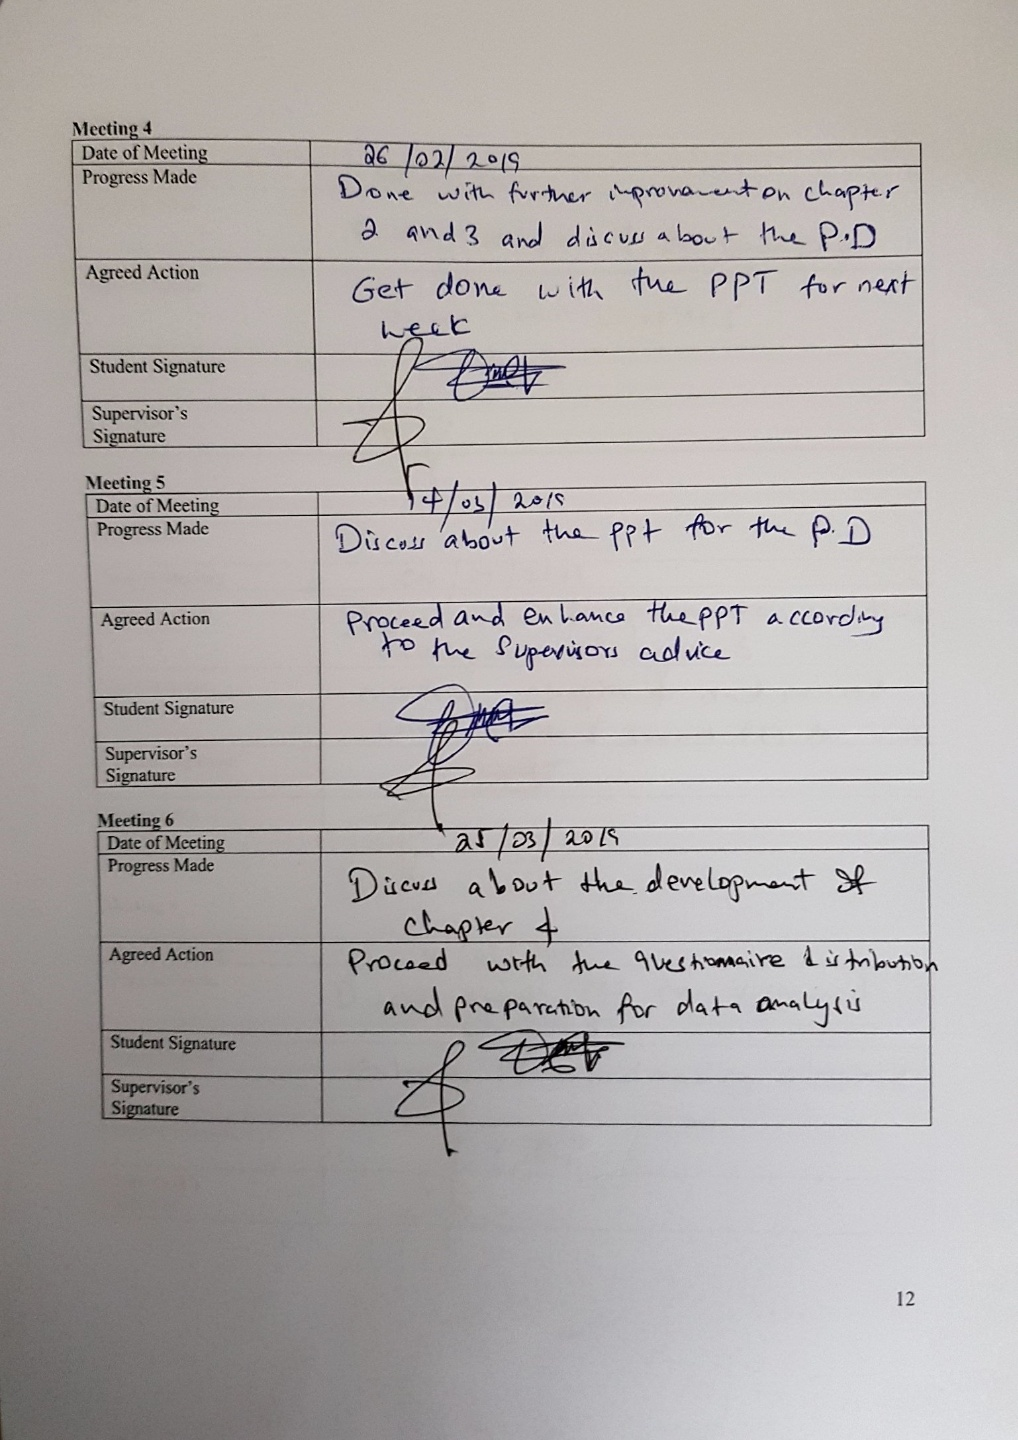 Meeting 4
Date of Meeting 26/02/2019
Progress Made Done with further improvament on chapter
2 and 3 and discuss about the P.D
Agreed Action Get done with the PPT for next
week
Student Signature
Supervisor's
Signature
Meeting 5
Date of Meeting /03/2019
Progress Made Discuss about the ppt for the P.D
Agreed Action Proceed and enhance the PPT according
to the Supervisors advice
Student Signature
Supervisor's
Signature
Meeting 6
Date of Meeting 25/03/2019
Progress Made Discuss about the development of
chapter 4
Agreed Action Proceed with the questionnaire distribution
and preparation for data analysis
Student Signature
Supervisor's
Signature
12